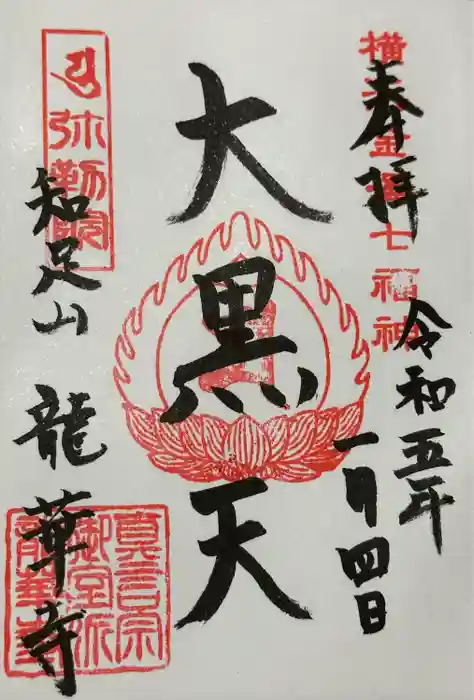 横浜金澤七福神
奉拝
令和五年
一月四日
大黒天
弥勒
知足山
龍華寺
真言宗
御室派
龍華寺